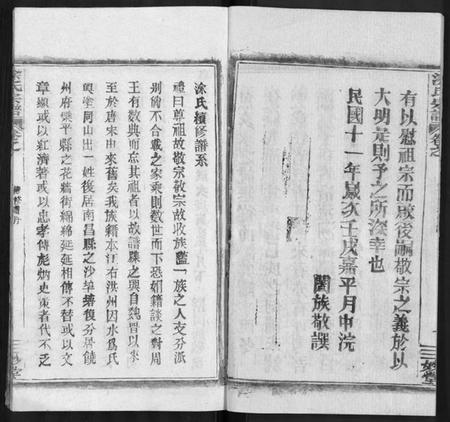 有以慰祖宗而啟後嗣敬宗之義於以
大明是則予之所深幸也
民國十一年歲次壬戌嘉平月中浣
闔族敬譔
涂氏續修譜系
禮曰尊祖故敬宗敬宗故收族蓋一族之人支分派
別前不合載之家乘則數世而下恐如籍談之對周
王有數典而忘其祖者以故譜牒之興自魏晉以來
至於唐宋由來舊矣我族籍本江右洪州因水爲氏
塗山出一姓後居南昌縣之沙埠後分居饒
州府樂平縣之花牆街綿綿延延相傳不替或以文
章顯或以紅濟著或以忠孝傳彪炳史策者代不乏
涂氏宗譜